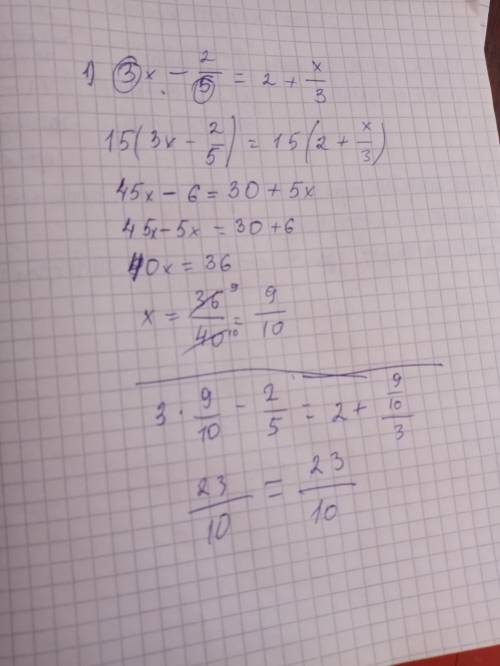 1) 3x - 2/5 = 2 + x/3
15(3x - 2/5) = 15(2 + x/3)
45x - 6 = 30 + 5x
45x - 5x = 30 + 6
40x = 36
x = 36 9/40 10 = 9/10
3 · 9/10 - 2/5 = 2 + 9/10/3
23/10 = 23/10